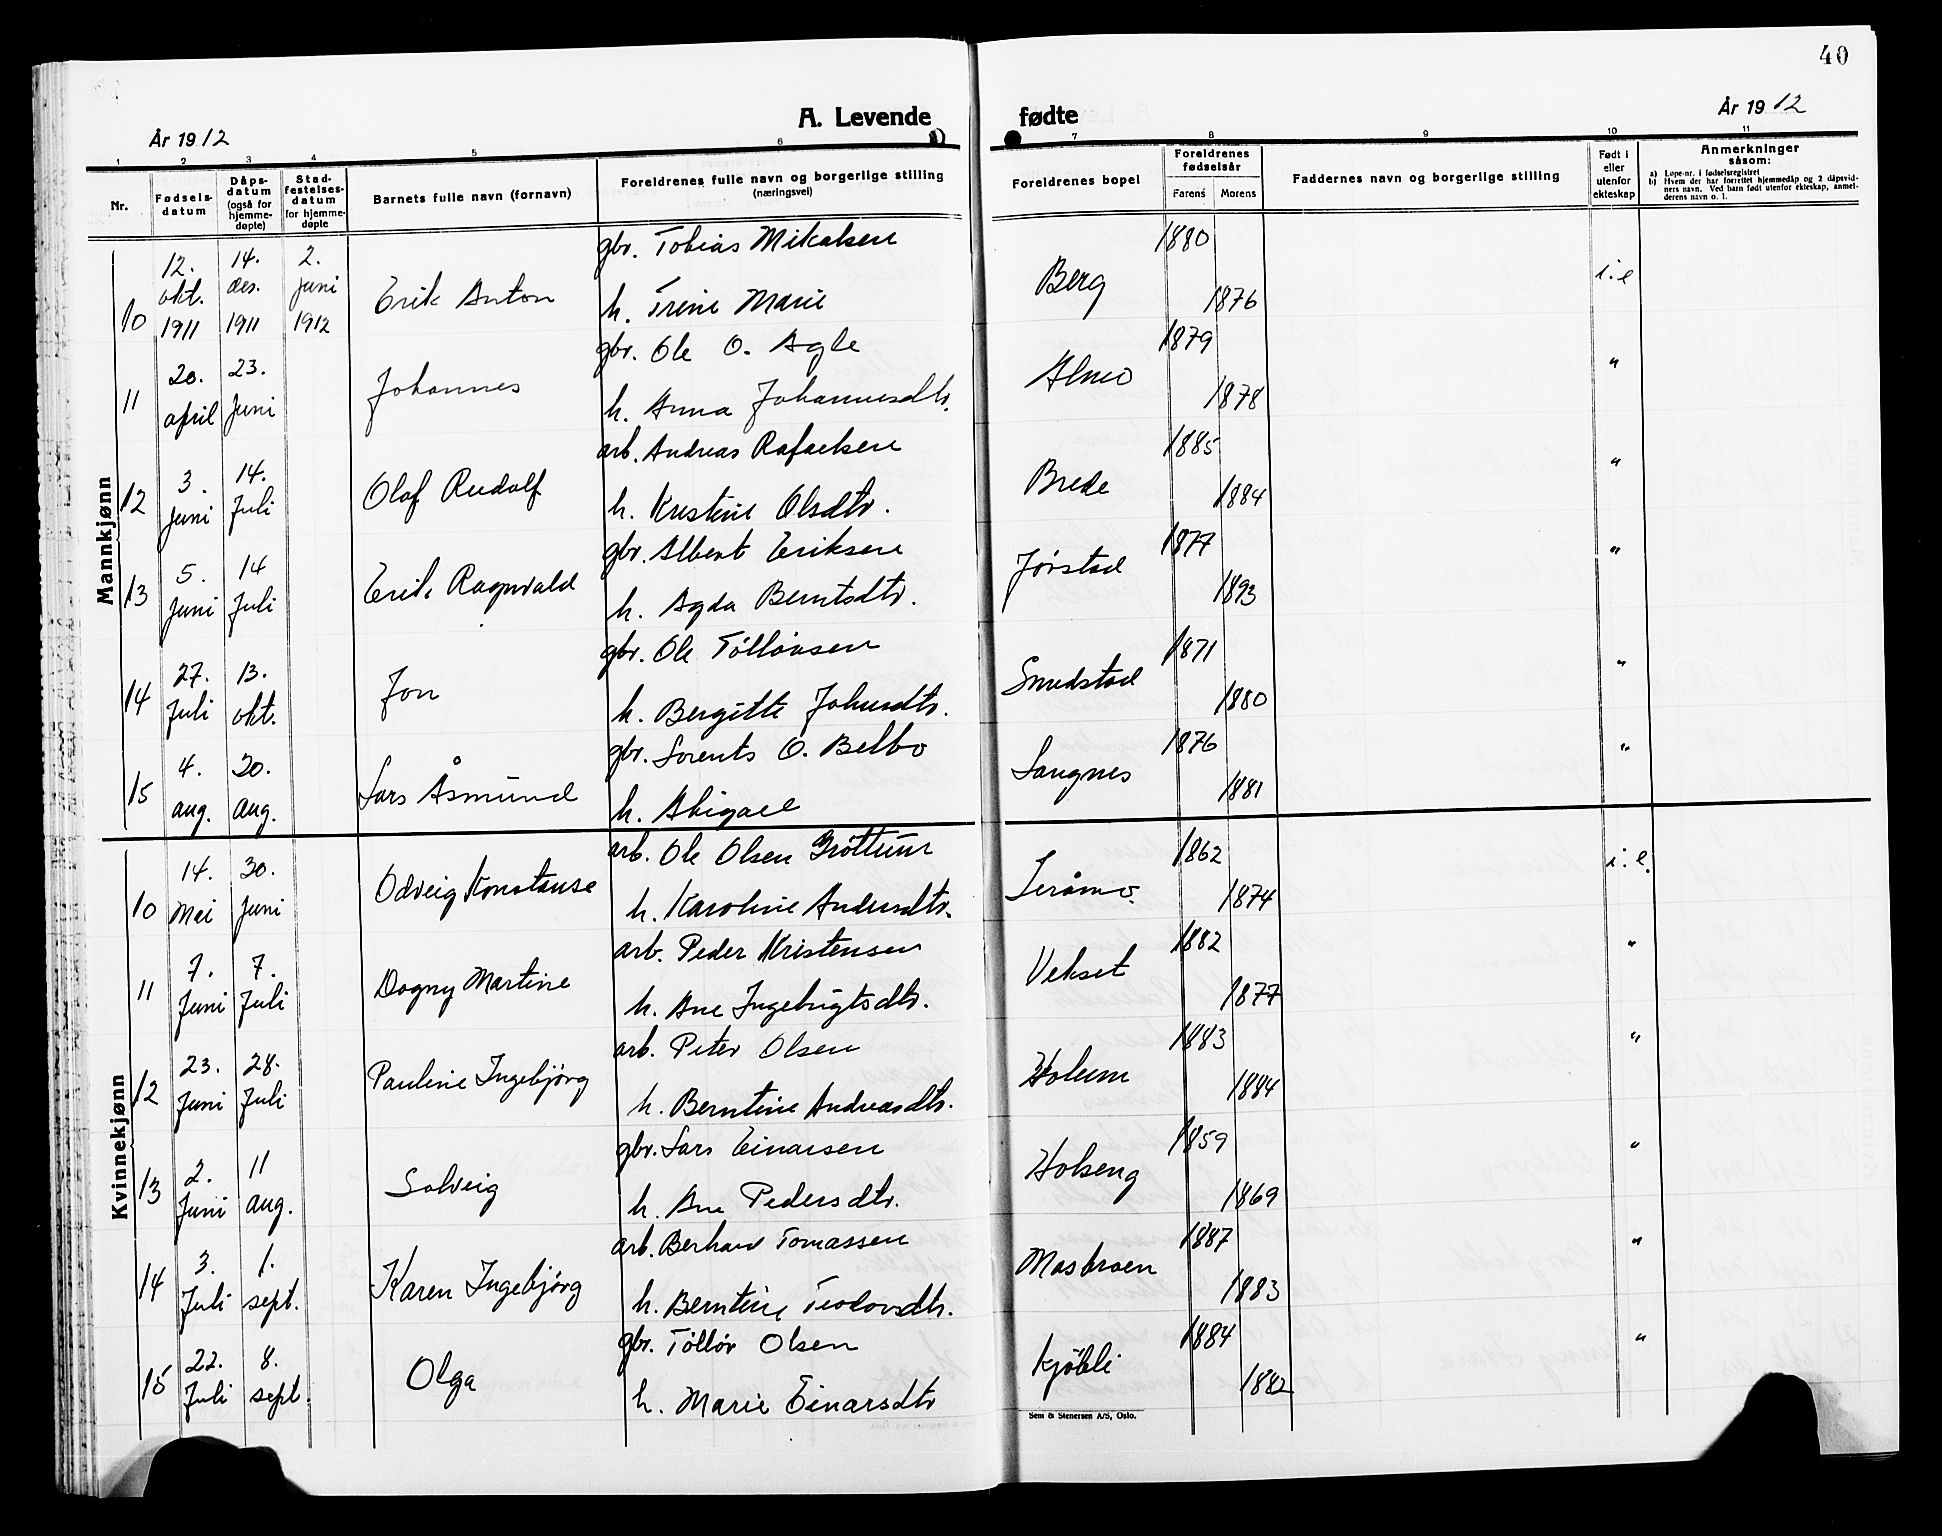 40
År 1912
A. Levende
fødte
År 1912
1 2 3 4 5 6 7 8 9 10 11
Nr.
Fødsels-
datum
Dåps-
datum
(også for
hjemme-
døpte)
Stad-
festelses-
datum
for hjemme-
døpte
Barnets fulle navn (fornavn)
Foreldrenes fulle navn og borgerlige stilling
(næringsvei)
Foreldrenes bopel
Foreldrenes
fødselsår
Farens Morens
Faddernes navn og borgerlige stilling
Født i
eller
utenfor
ekteskap
Anmerkninger
såsom:
a) Løpe-nr. i fødselsregistret
b) Hvem der har forrettet hjemmedåp og 2 dåpsvid-
ners navn. Ved barn født utenfor ekteskap, anmel-
derens navn o. l.
Mannkjønn
10 12. okt. 1911 14. des. 1911 2. juni 1912 Erik Anton gbr. Tobias Mikalsen Berg 1880 i. e
h. Trine Marie 1876
11 20. april 23. juni Johannes gbr. Ole O. Agle Almo 1879 "
h. Anna Johannesdtr. 1878
12 3. juni 14. juli Olaf Rudolf arb. Andreas Rafaelsen Brede 1885 "
h. Kristine Olsdtr. 1884
13 5. juni 14 juli Erik Ragnvald gbr. Albert Eriksen Jørstad 1877 "
h. Agda Berntsdtr. 1893
14 27. juli 13. okt. Jon gbr. Ole Tølløvsen Smedstad 1871 "
h. Bergitte Johnsdtr. 1880
15 4. aug. 30. aug. Lars Åsmund gbr. Lorents O. Belbo Langnes 1876 "
h. Abigael 1881
Kvinnekjønn
10 14. mai 30. juni Odveig Konstanse arb. Ole Olsen Grøttum 1862 i. e.
h. Karoline Andersdtr. 1874
11 7. juni 7. juli Dagny Martine arb. Peder Kristensen Vekset 1882 "
h. Ane Ingebrigtsdtr. 1877
12 23. juni 28. juli Pauline Ingebjørg arb. Peter Olsen Holum 1883 "
h. Berntine Andreasdtr. 1884
13 2. juni 11 aug. Solveig gbr. Lars Einarsen Holseng 1859 "
h. Ane Pedersdtr. 1869
14 3. juli 1. sept. Karen Ingebjørg arb. Berhard Tomassen Masbraen 1887 "
h. Berntine Teodorsdtr. 1883
15 22. juli 8. sept. Olga gbr. Tølløv Olsen Kjøbli 1884 "
h. Marie Einarsdtr 1882
Sem & Stenersen A/S, Oslo.